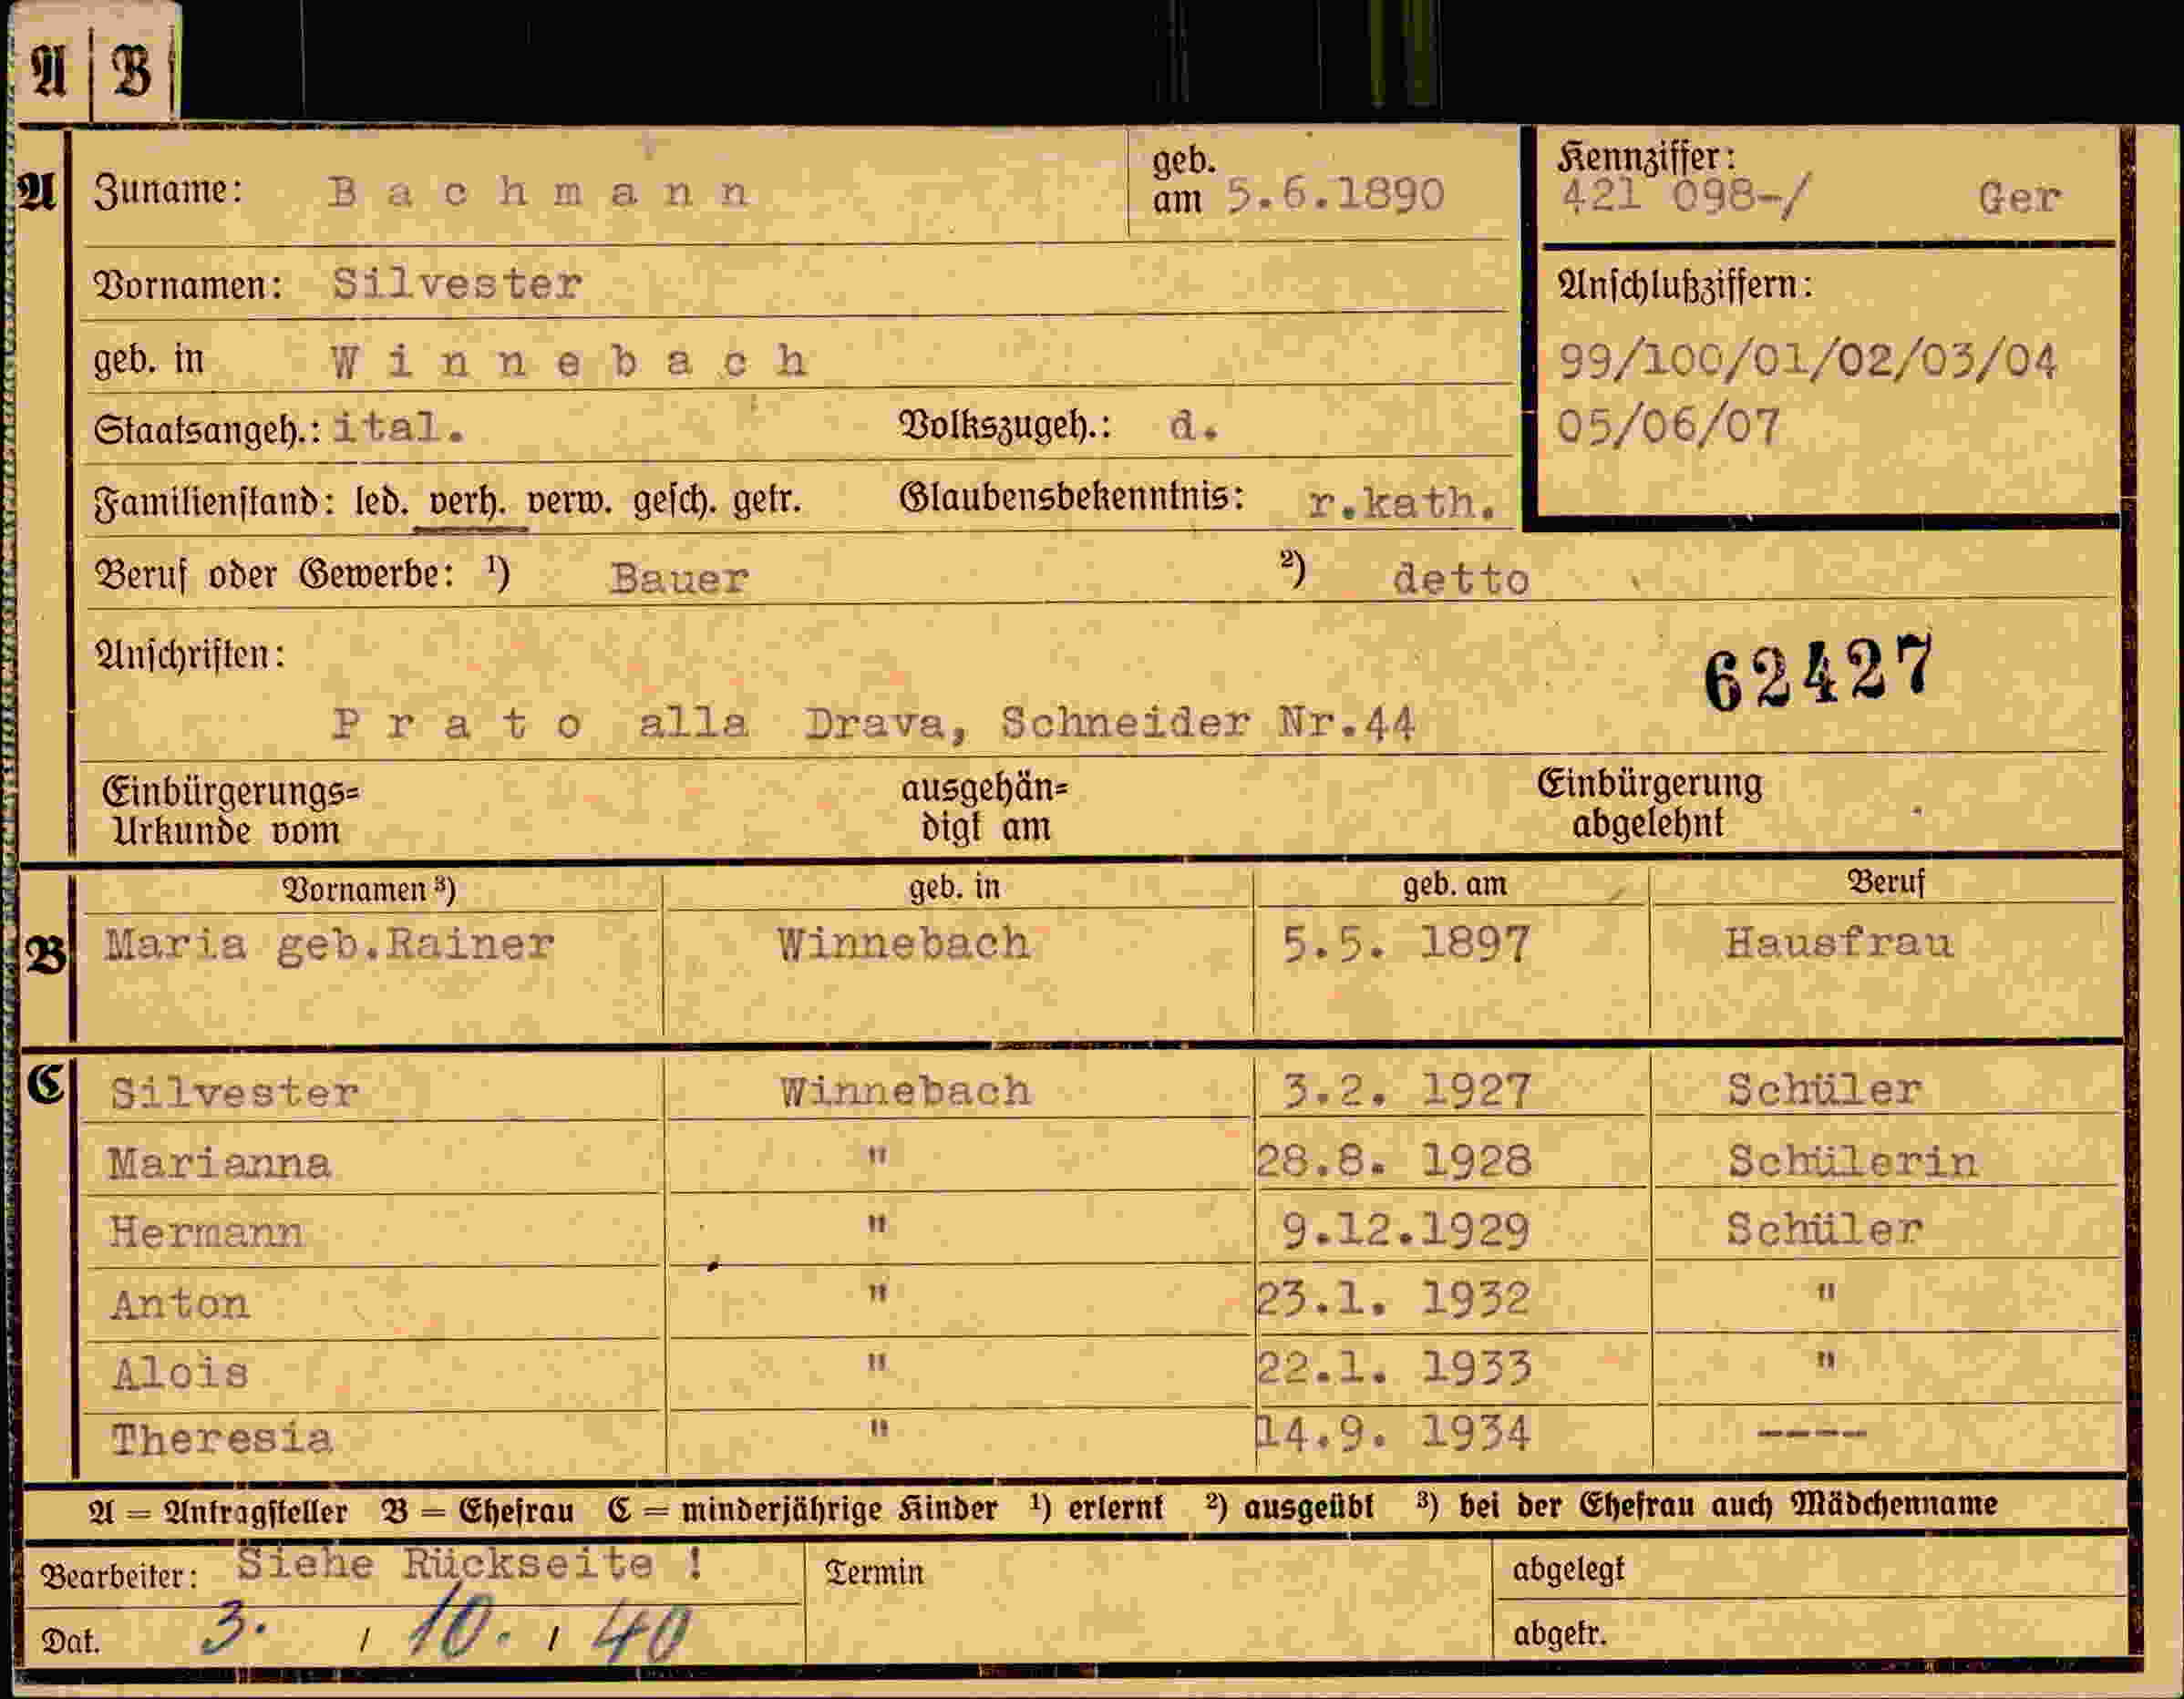 A B
A Zuname: Bachmann geb. am 5.6.1890 Kennziffer: 421 098-/ Ger
Vornamen: Silvester Anschlußziffern:
geb. in Winnebach 99/100/01/02/03/04
Staatsangeh.: ital. Volkszugeh.: d. 05/06/07
Familienstand: led. verh. verw. gesch. getr. Glaubensbekenntnis: r.kath.
Beruf oder Gewerbe: ¹) Bauer ²) detto
Anschriften: 62427
Prato alla Drava, Schneider Nr.44
Einbürgerungs= ausgehän= Einbürgerung
Urkunde vom digt am abgelehnt
Vornamen ³) geb. in geb. am Beruf
B Maria geb.Rainer Winnebach 5.5. 1897 Hausfrau
C Silvester Winnebach 3.2. 1927 Schüler
Marianna " 28.8. 1928 Schülerin
Hermann " 9.12.1929 Schüler
Anton " 23.1. 1932 "
Alois " 22.1. 1933 "
Theresia " 14.9. 1934 ----
A = Antragsteller B = Ehefrau C = minderjährige Kinder ¹) erlernt ²) ausgeübt ³) bei der Ehefrau auch Mädchenname
Bearbeiter: Siehe Rückseite ! Termin abgelegt
Dat. 3. / 10. / 40 abgetr.